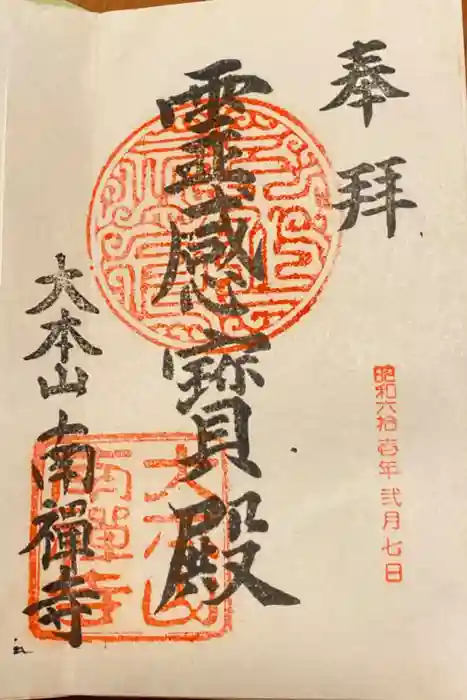 奉拜
昭和六拾壱年弐月七日
靈感寳殿
大本山南禪寺
大本山
南禪寺